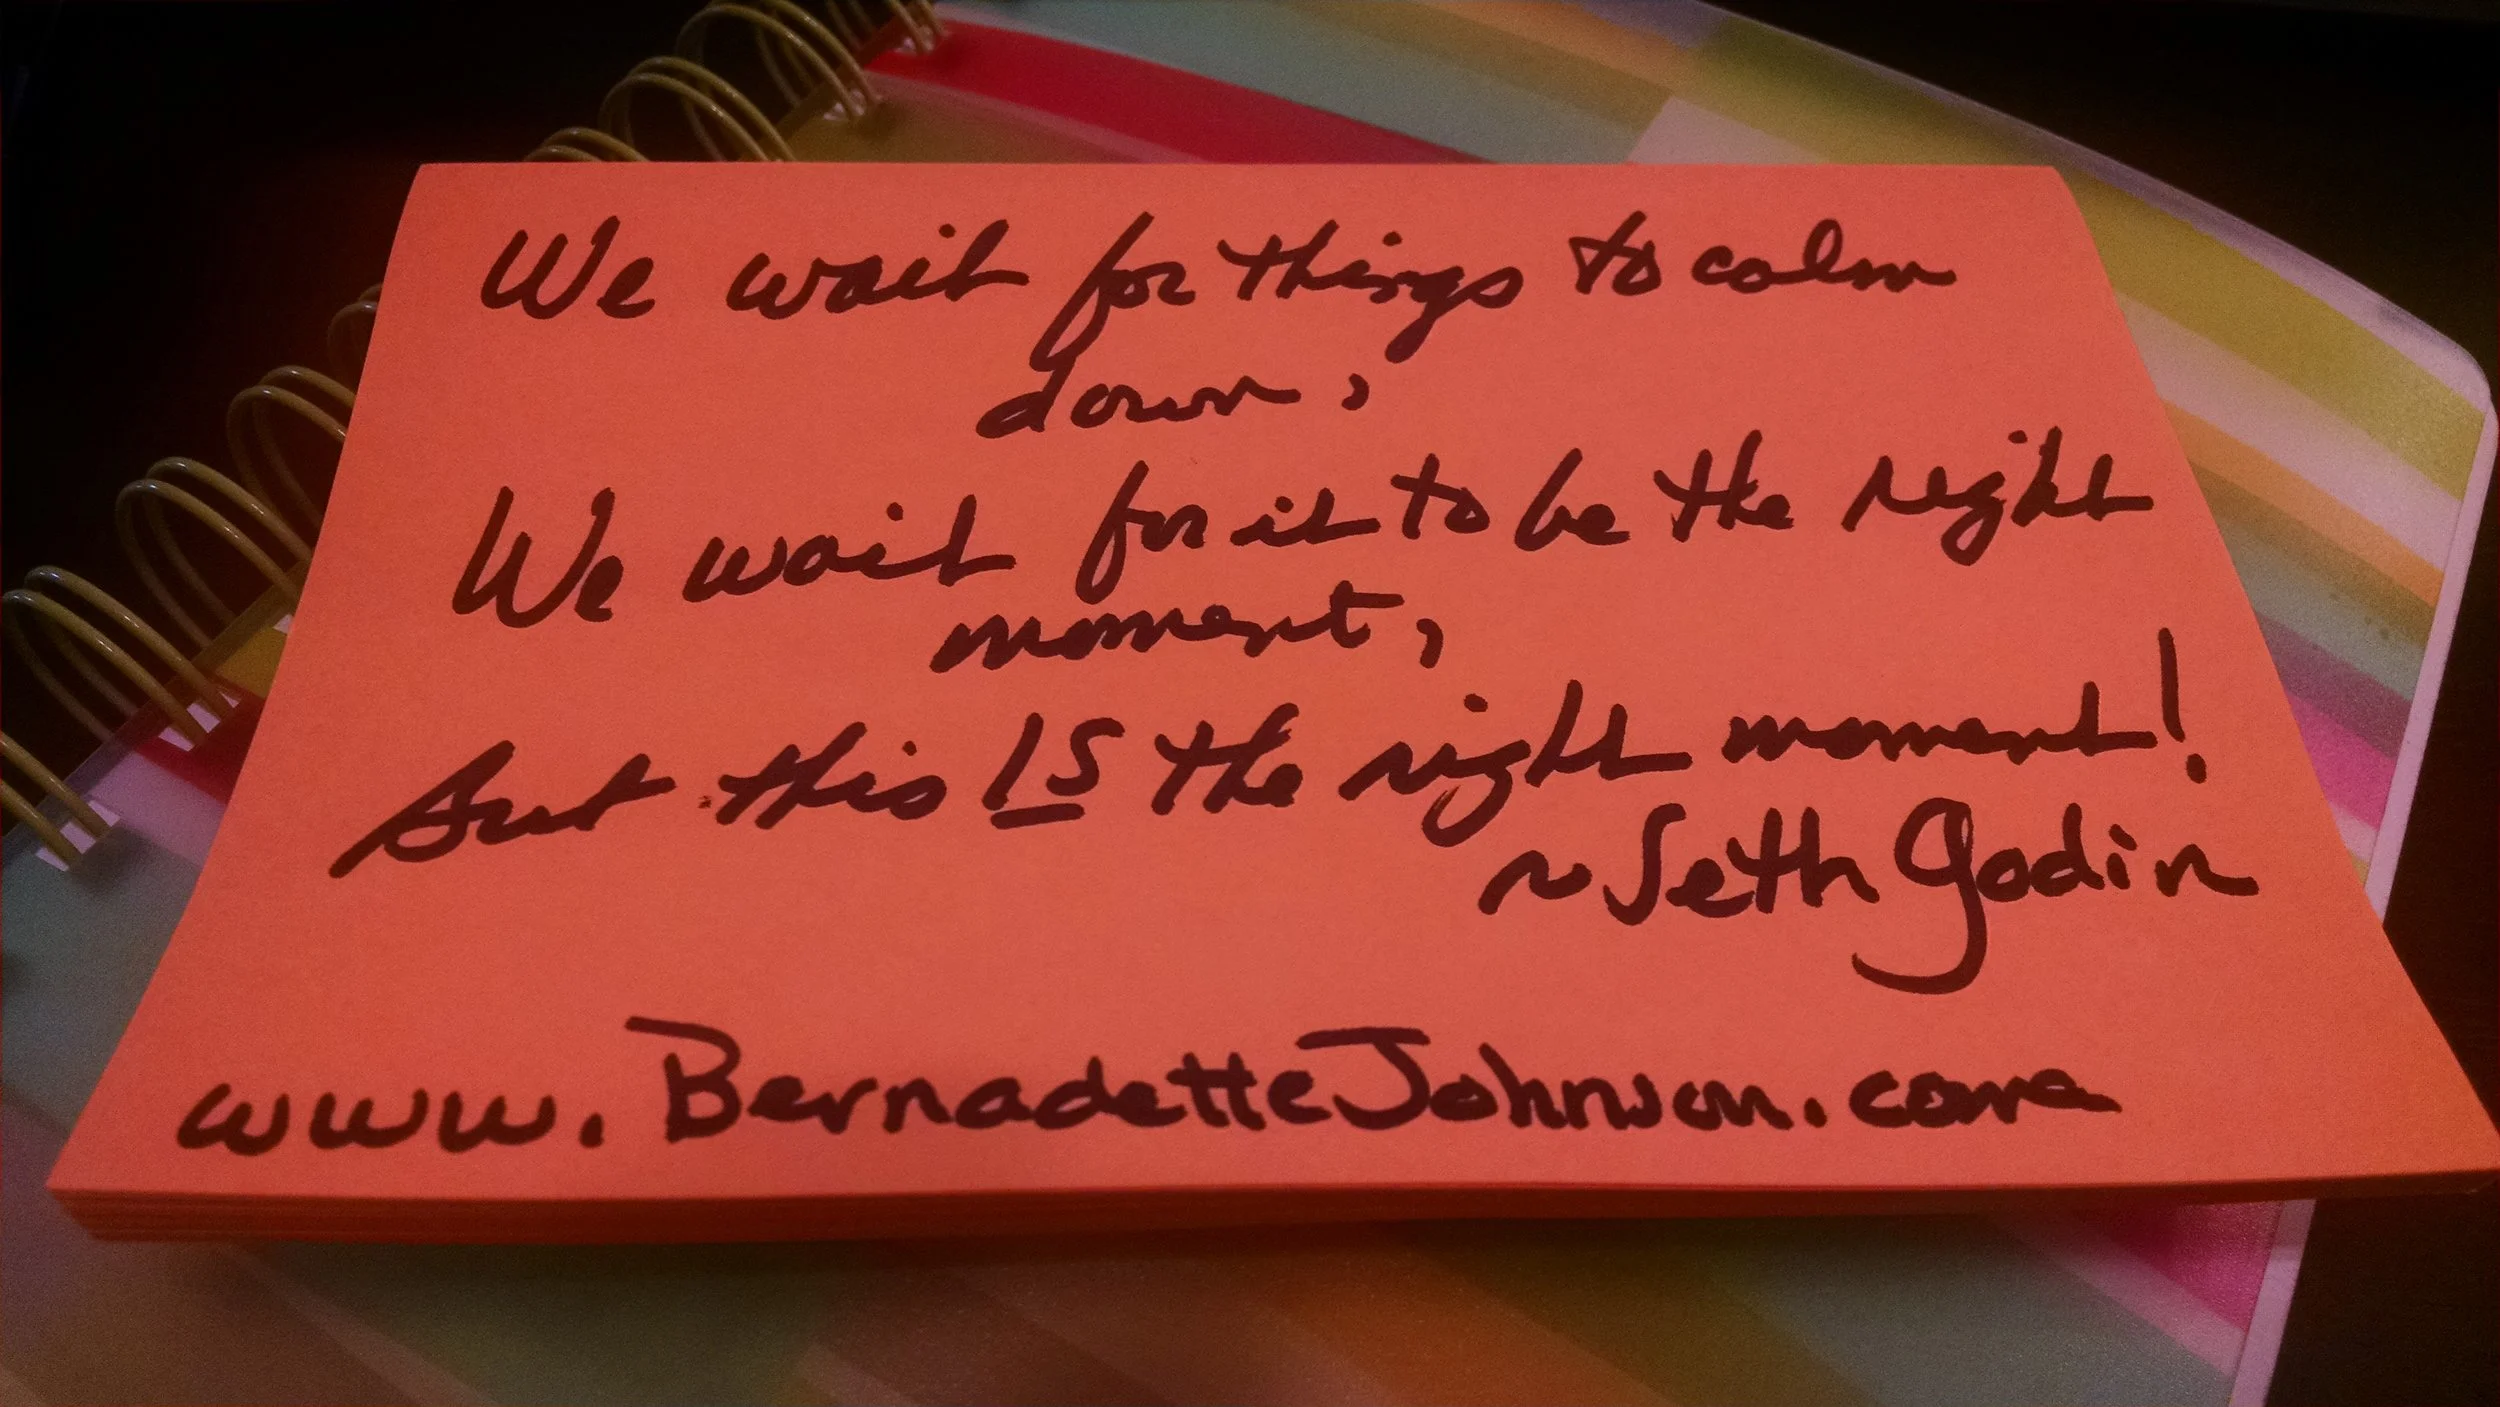 We wait for things to calm
down,
We wait for it to be the right
moment,
but this IS the right moment!
~ Seth Godin
www.BernadetteJohnson.com